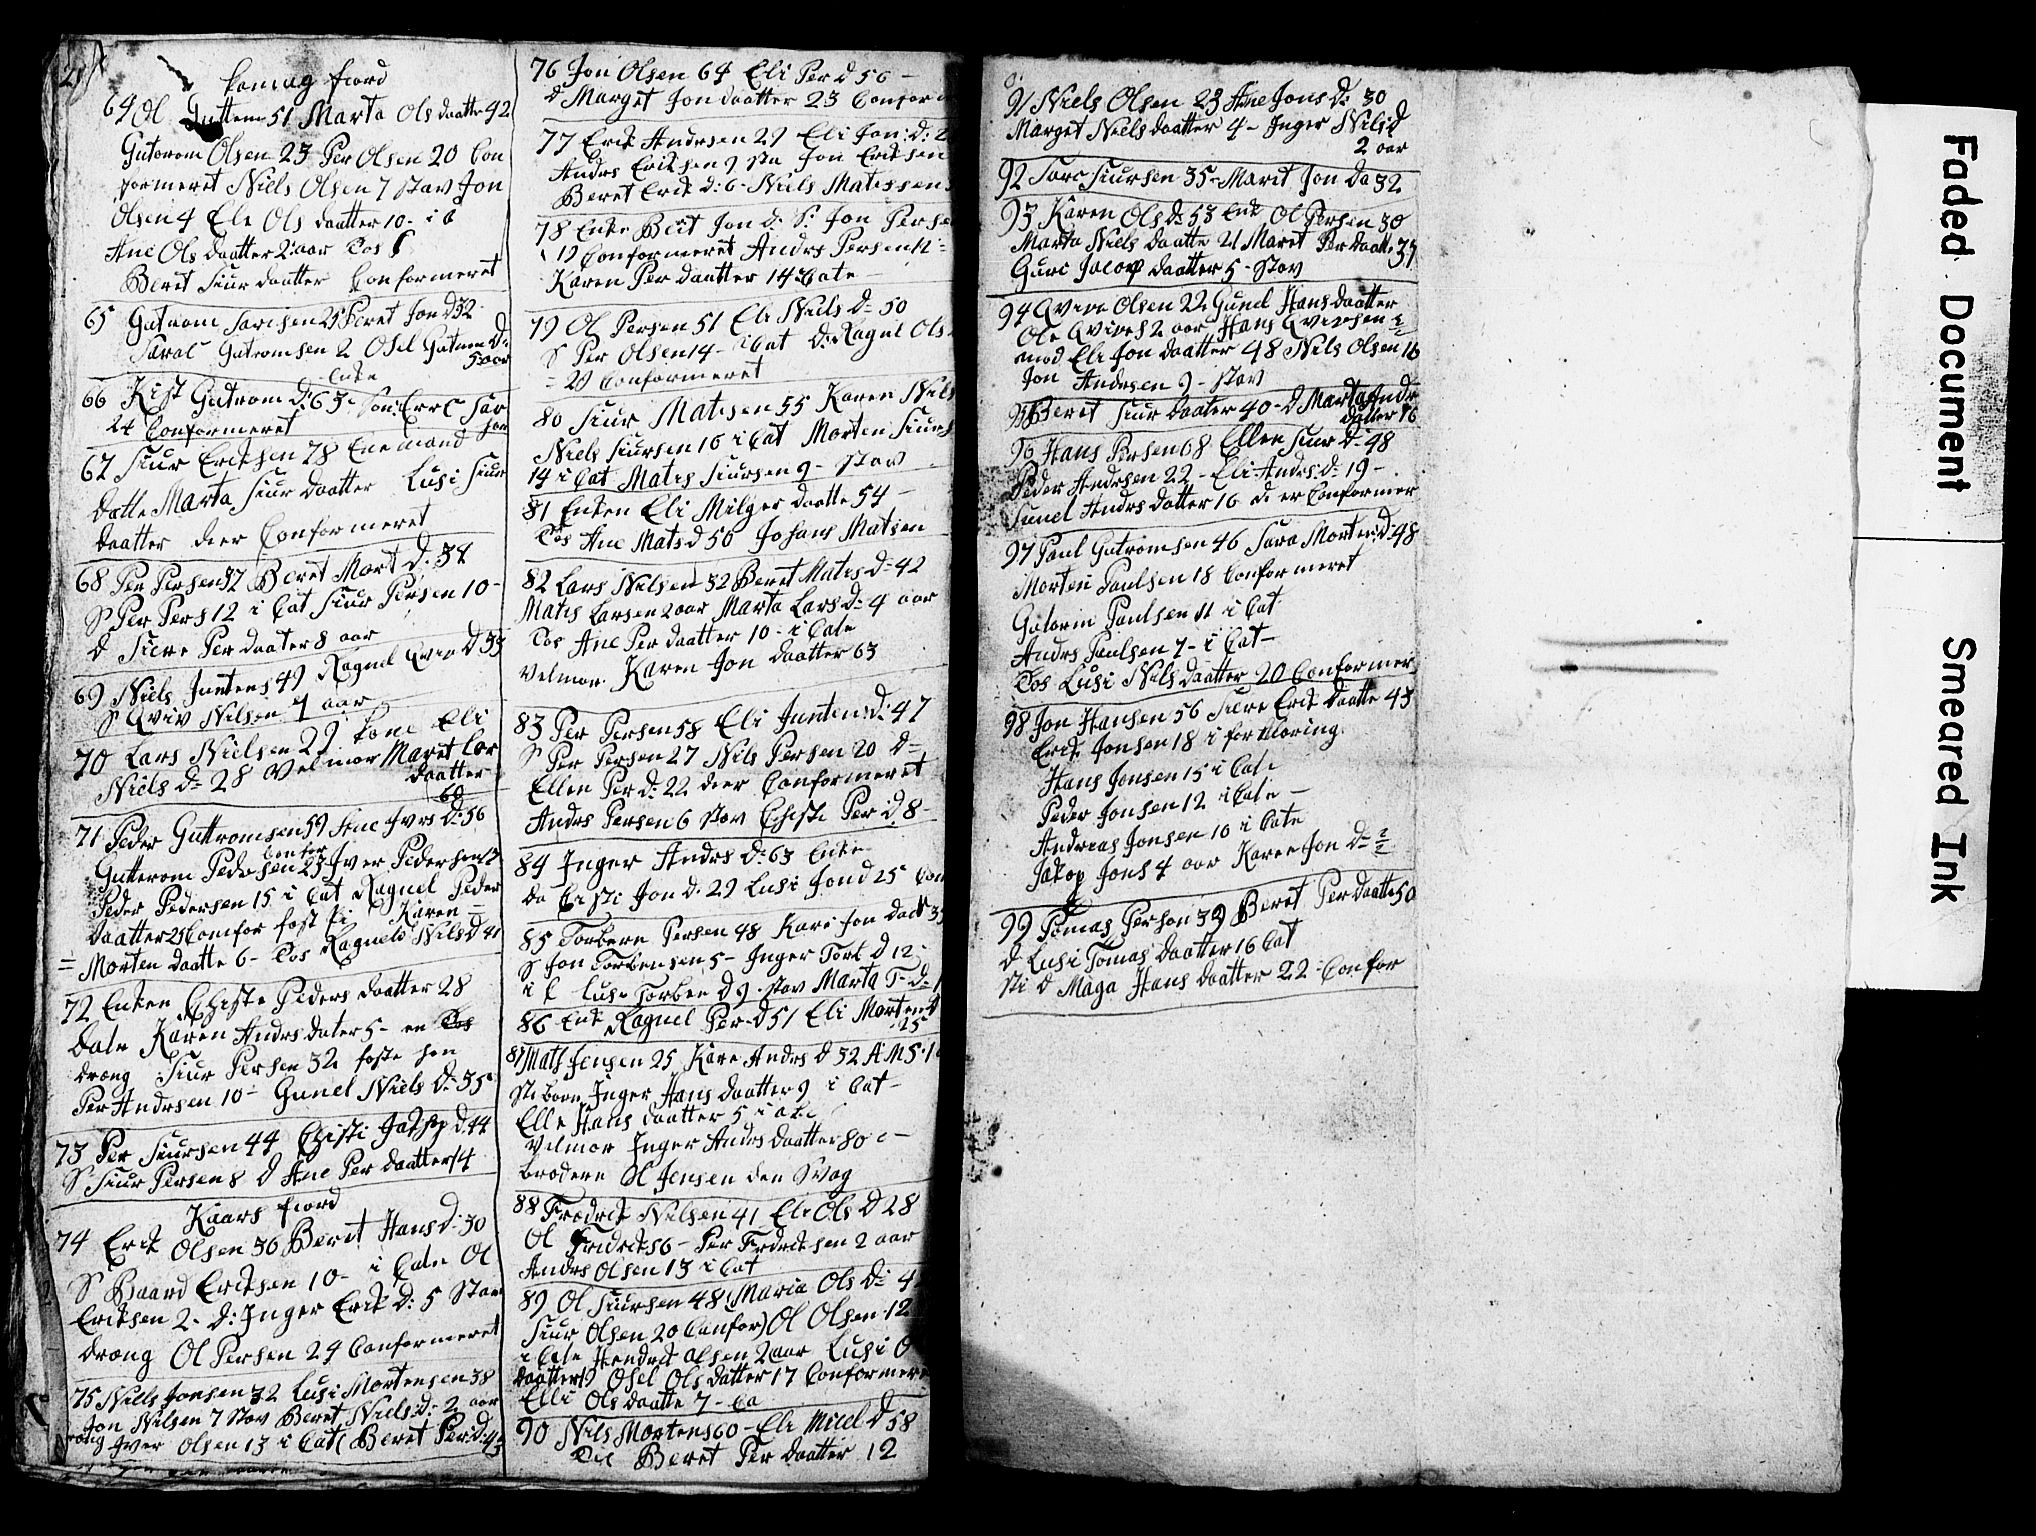 komag fiord
64 Ol Guttem 51 Marta Ols daatter 42
Gutorom Olsen 23 Per Olsen 20 Con
formeret Niels Olsen 7 Stav Jon
Olsen 4 Ele Ols daatter 10 - i C
Ane Ols daatter 2 aar Tos
Beret Siur daatter Conformeret
65 Gutrom Sarchsen 25 Beret Jon D 32
Saral Gutromsen 2 Osel Gutrom D:
5 aar
Enke
66 Kist Gutrom D: 63 - Son: Erre Sar
24 Conformeret sen
67 Siur Ericksen 78 Enemand
Datte Marta Siur daatter Lusi Siur
daatter deer Conformeret
68 Per Persen 37 Beret Mort D: 38
S Per Pers 12 i Cat Siur Persen 10 -
D Siere Per daater 8 aar
69 Niels Juntens 49 Ragnel Qviv D 33
S Qviv Nilsen 7 aar
70 Lars Nielsen 29 kone Eli
Niels D: 28 Velmor Marit Lar
daatter
60
71 Peder Guttromsen 59 Ane Jvrs D: 56
Confor
Gutterom Pedersen 23 Jver Pedersen 17
Peder Pedersen 15 i Cat Ragnel Peder
daatter 25 Comfor fost Pi Karen =
= Morten daatte 6 - Tos Ragnele Nils D 41
72 Enken Chiste Peders daatter 28
Date Karen Andrs dater 5 - en Tos
dræng Siur Persen 32 foste sen
Per Andrsen 10 - Gunel Niels D: 35
73 Per Siursen 44 Chisti Jakop D. 44
S Siur Persen 8 D Ane Per daatter 14
Kaars fiord
74 Erik Olsen 36 Beret Hans D: 30
S Baard Ericksen 10 - i Cate Ol
Ericksen 2 - D: Inger Erick D: 5 Stav
dræng Ol Persen 24 Conformeret
75 Niels Jonsen 32 Lusi Mortensen 38
Jon Nilsen 7 Stov Beret Niels: D: 2 aar
Jver Olsen 13 i Cat Beret Per: D: 43
76 Jon Olsen 64 Eli Per D 56 -
D Marget Jon daatter 23 Confor
77 Erick Andrsen 29 Eli Jon: D: 2
Andrs Ericksen 9 sta Jon Ericksen
Beret Erick D: 6 - Niels Matissen
78 Enke Berit Jon D: S: Jon Perse
19 Conformeret Andrs Persen 12 =
Karen Per daatter 14 Cate -
79 Ol Persen 51 Eli Niels D: 50
S Per Olsen 14 - i Cat D: Ragnl Ols
= 20 Conformeret
80 Siur Matisen 55 Karen Nils
Niels Siursen 16 i Cat Morten Siurs
14 i Cat Matis Siursen 9 - Stov
81 Enken Eli Milger daatte 54 -
Tos Ane Mats D 50 Johans Matsen
82 Lars Nilsen 32 Beret Matis D: 42
Matis Larsen 2 aar Marta Lars D: 4 aar
Tos Ane Per daatter 10 - i Cate
Velmor. Karen Jon daatter 63
83 Per Persen 58 Eli Junten: D: 47
S Per Persen 27 Nils Persen 20 D =
Ellen Per D: 22 deer Conformeret
Andrs Persen 6 Stov Chiste Per: D. 8 -
84 Inger Andrs D: 63 Enke
Da Cisti Jon D: 29 Lusi Jon D 25 Con
85 Torbern Persen 48 Kari Jon daat 35
S Jon Torbensen 5 - Inger Torb D 12
i C Lusi Torben D 9 - Stov Marta T - D: 1
86 Enk Ragnel Per - D 51 Eli Morten D
25
87 Mats Jensen 25 Kare Andrs D 32 A M S
Stiborn Inger Hans daatter 9 i Cat -
Elle Hans daatter 5 i ate
Velmor Inger Andrs daatter 80 -
brodere Ol Jensen den Svag
88 Fredrick Nilsen 41 Eli Ols D 28
Ol Fridrick 6 - Per Fredricksen 2 aar
Andrs Olsen 13 i Cat
89 Ol Siursen 48 (Maria Ols D: 4
Siur Olsen 20 Confor) Ol Olsen 12
i Cate Hendrik Olsen 2 aar Lusi O
daatter 19 Osel Ols datter 17 Conformere
Elli Ols daatte 7 - Ca
90 Nils Mortens 60 - Eli Micel D 58
Beret Per daatter 12
91 Niels Olsen 23 Ane Jons D: 30
Marget Niels daatter 4 - Inger Nils D
2 aar
92 Sarc Siursen 35 - Marit Jon Da 32
93 Karen Ols D: 53 Enk Ol Persen 30
Marta Niels daatte 21 Maret Per daatte 37
Guri Jacop daatter 5 - Stov
94 Qvive Olsen 22 Gunel Hans daatter
Ole Qvives 2 aar Hans Qvivesen ½
mod Eli Jon daatter 48 Nils Olsen 16
Jon Andrsen 9 - Stav
95 Beret Siur daater 40 - D Marta Andr
datter 16
96 Hans Persen 68 Ellen Siur D: 48
Peder Andrsen 22 - Eli Andrs: D: 19 -
Sunel Andrs datter 16 de er Conformer
97 Paul Gutromsen 46 Sara Morten: D: 48
Morten Paulsen 18 Conformeret
Gutorin Paulsen 11 i Cat
Andrs Paulsen 7 - i Cat -
Tos Lusi Nils daatter 20 Conformer
98 Jon Hansen 56 Siere Erick daatte 43
Erick Jonsen 18 i forklaring
Hans Jonsen 15 i Cate
Peder Jonsen 12 i Cate -
Andreas Jonsen 10 i Cate
Jakop Jons 4 aar Karen Jon D: ½
99 Tomas Persen 39 Beret Per daatte 50
D Lusi Tomas daatter 16 Cat
Sti D Maga Hans daatter 22 - Confor
Faded Document
Smeared Ink